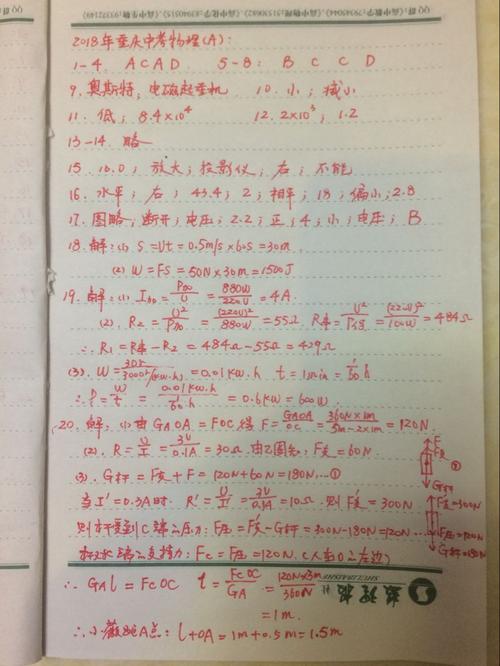 2018年重庆中考物理(A):
1-4. A C A D 5-8: B C C D
9. 奥斯特; 电磁起重机 10. 小; 减小
11. 低; 8.4×10⁴ 12. 2×10³; 1.2
13-14. 略
15. 10.0; 放大; 投影仪; 右; 不能
16. 水平; 右; 43.4; 2; 相平; 18; 偏小; 2.8
17. 图略; 断开; 电压; 2.2; 正; 4; 小; 电压; B
18. 解: (1) S=Vt=0.5m/s×60s=30m
(2) W=FS=50N×30m=1500J
19. 解: (1) I加=P加/U=880W/220V=4A.
(2). R₂=U²/P加=(220V)²/880W=55Ω R串=U²/P保=(220V)²/100W=484Ω
∴R₁=R串-R₂=484Ω-55Ω=429Ω
(3). W=30r/3000r/(kw·h)=0.01kw·h t=1min=1/60 h
∴P=W/t=0.01kw·h/(1/60 h)=0.6kw=600W
20. 解: (1)由GAOA=FOC得F=GAOA/OC=360N×1m/5m-2×1m=120N.
(2). R=U/I=3V/0.1A=30Ω 由乙图知: F支=60N.
(3). G杆=F支+F=120N+60N=180N…①
当I'=0.3A时. R'=U/I'=3V/0.3A=10Ω. 则F支'=300N
则杆受到C端的压力: F压=F支'-G杆=300N-180N=120N
F
F支
G杆
F支=300N
F压=120N
G杆=180N
杆对C端的支持力: FC=F压=120N. (人在O的左边)
∴GAl=FCOC l=FCOC/GA=120N×3m/360N
=1m.
∴小薇距A点: l+OA=1m+0.5m=1.5m